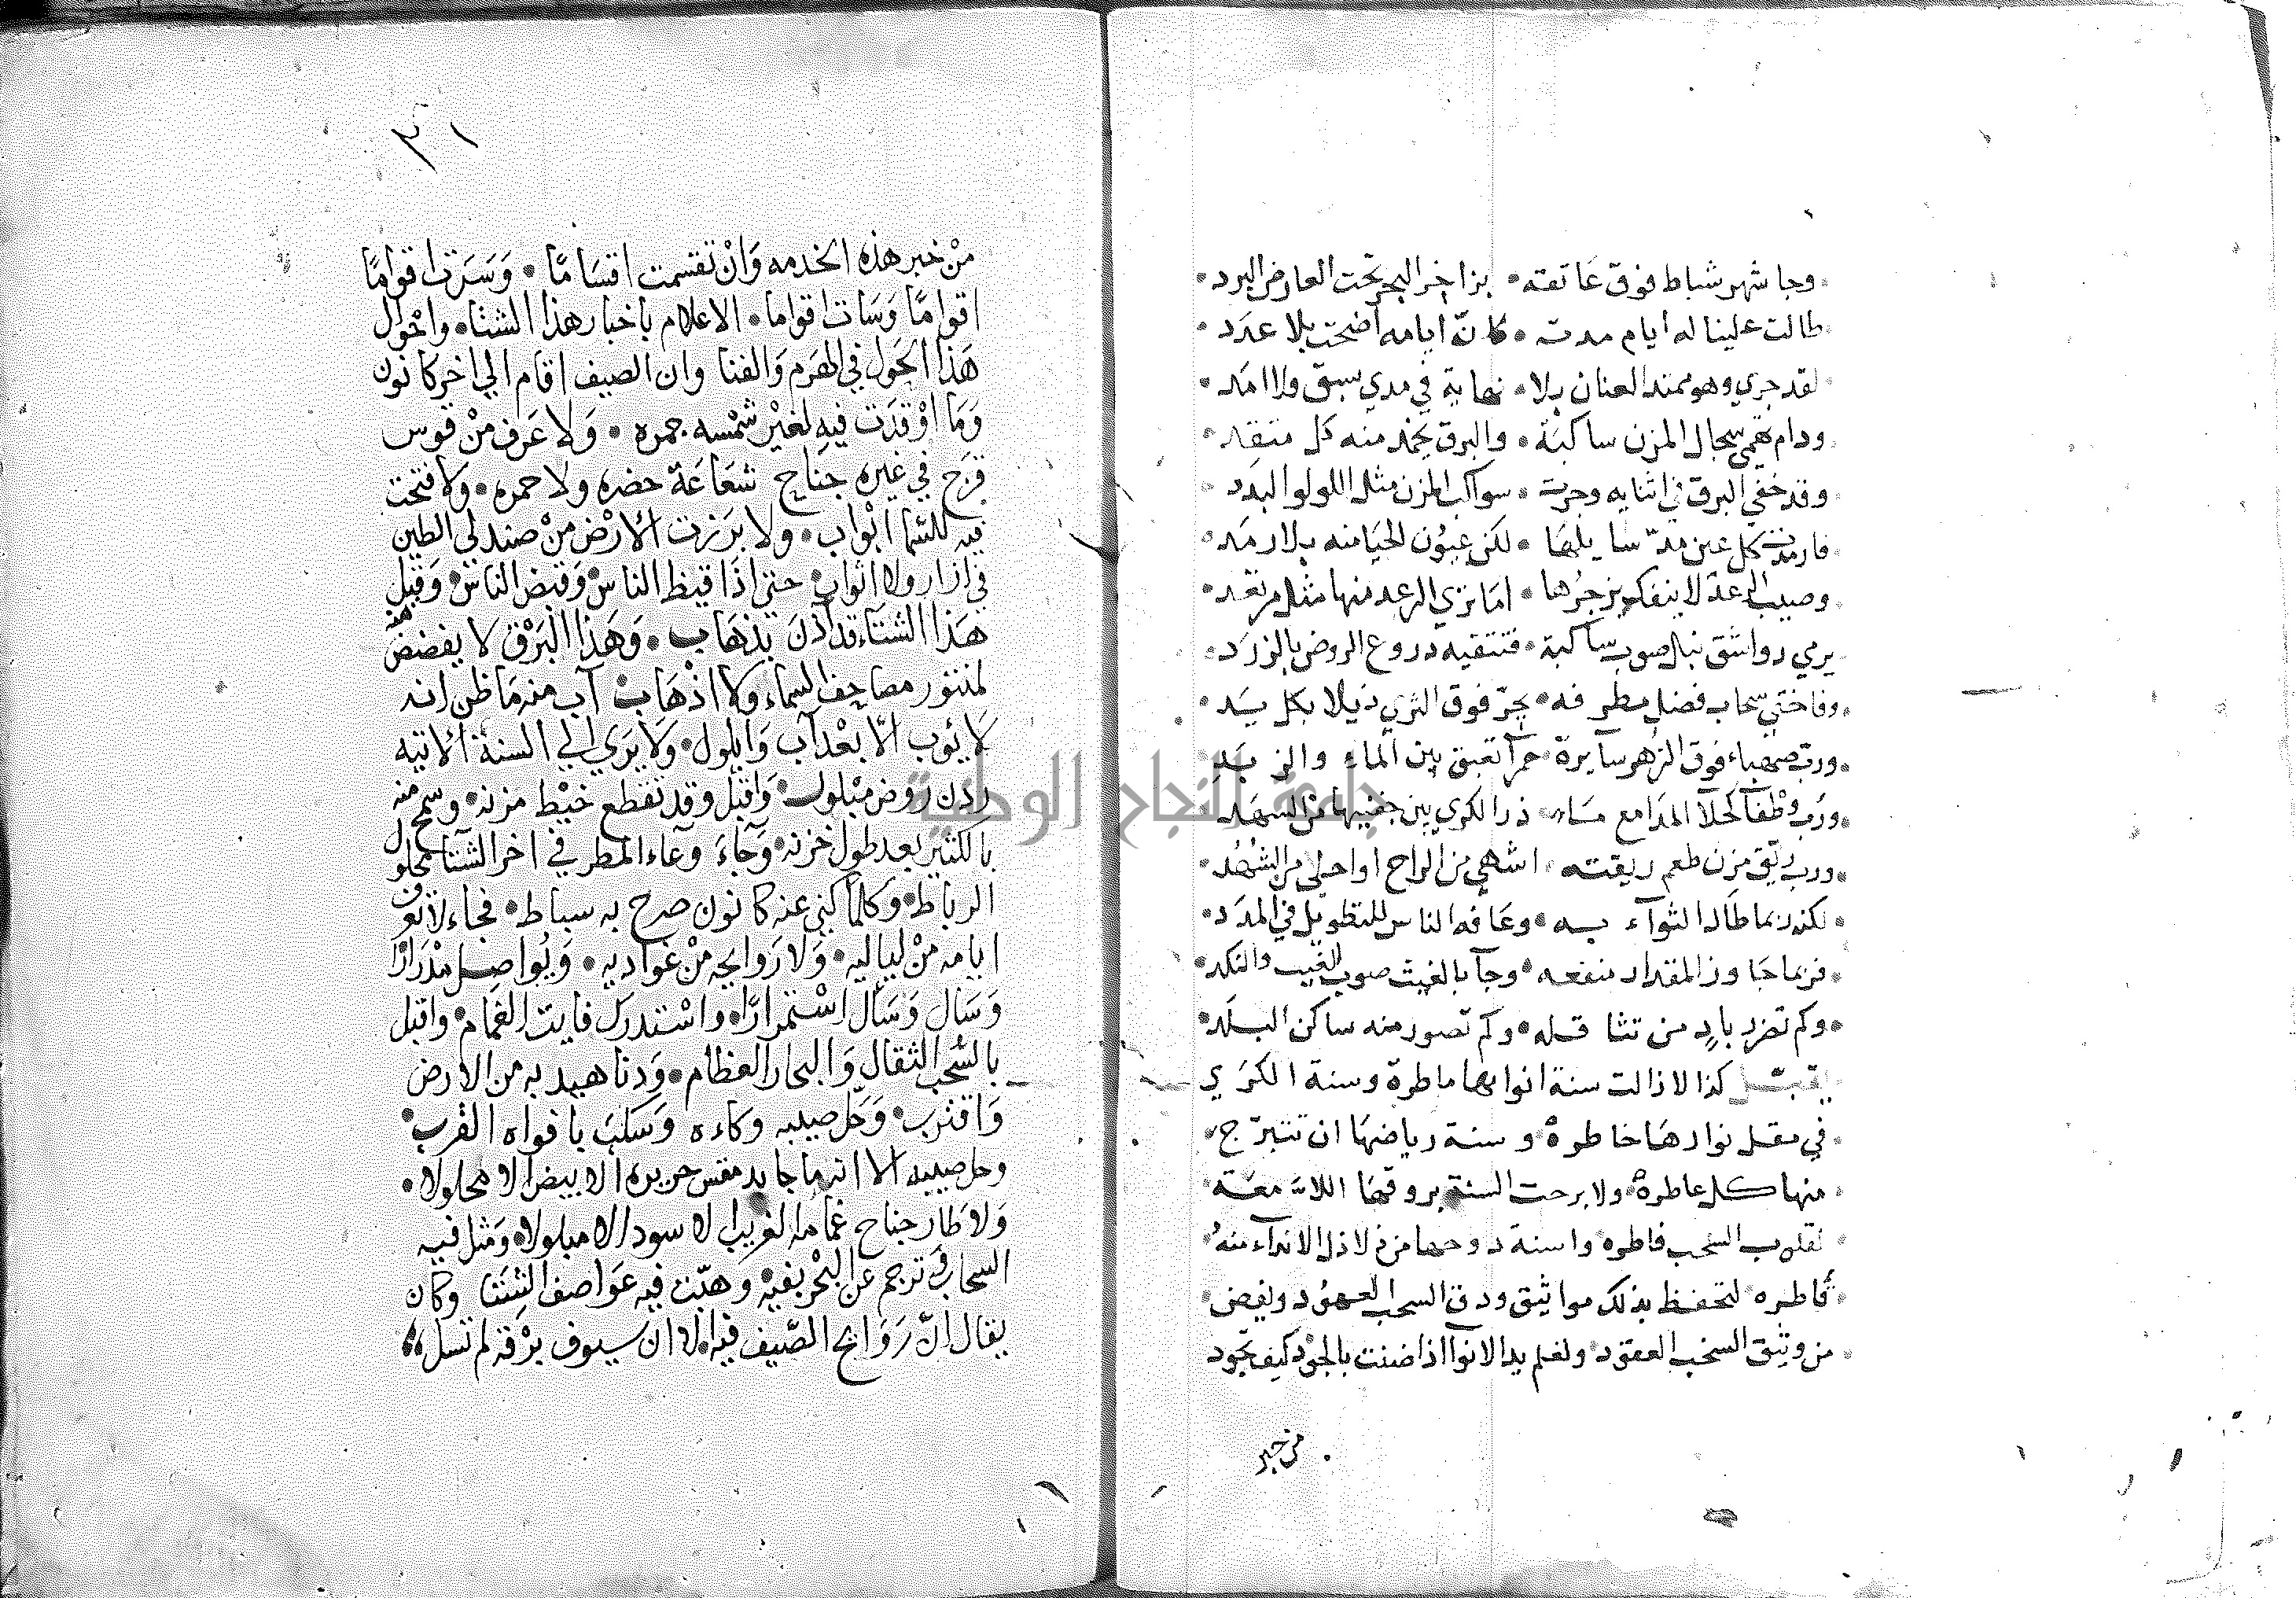 وجا شهر شباط فوق عاتقه • بزاخر البحر تحت العارض البرد •
طالت علينا له ايام مدته • كانّ ايامه اضحت بلا عدد •
لقد جري وهو ممتد العنان بلا • نهاية في مدي سبق ولا امد •
ودام تهمي سجال المزن ساكبة • والبرق يخمد منه كل متقد
وقد خفي البرق في اثنايه وجرت • سواكب المزن مثل اللولو البدد
فارمدت كل عين مدّ سايلها • لكن عيون الحيا منه بلا رمد •
وصيب الرعد لا ينفك يزجرها • اما تري الرعد منها مثل مرتعد •
يرمي رواشق نبال صوب ساكبة • فتتقيه دروع الروض بالزرد •
وفاختي سحاب فضل مطرفه • يجرّ فوق الثري ذيلا بكل يد •
ورب صهباء فوق الزهر سايرة • حمرآ تعبق بين الماء والزبد
ورب وطفآ كحلآ المدامع • ذر الكري بين جفنيها من السهد
ورب ريق مزن طعم ريقته • اشهي من الراح او احلي من الشهد •
لكنه ربما طال الثوآء به • وعافه الناس للتطويل في المدد •
فربما جاوز المقدار منفعه • وجآ بالغيث صوب الغيب والنكد •
وكم تضرر بادٍ من تثاقله • وكم تصور منه ساكن البلد •
يقبل كذا لا زالت سنة انوايها ماطرة وسنة الكري
في مقل نوارها خاطرة • وسنة رياضها ان تتبرّج
منها كل عاطرة • ولا برحت السنة بروقها اللامعة
لقلوب السحب فاطرة واسنة دوحها من لاذل الاندآء منه
قاطره لتحفظ بذلك مواثيق ودق السحب العهود ونفض
من وثيق السحب العقود ولنعلم يد الانوآ اذا ضنت بالجود كيف تجود
من خبر
٣١
من خبر هذه الخدمه وان تقسمت اقساما • وسرت اقواما
اقواما وسات اقواما • الاعلام باخبار هذا الشتا • واحوال
هذا الحول في الهرم والفنا وان الصيف اقام الي اخر كانون
وما اوقدت فيه لغير شمسه جمره • ولا عرف من قوس
قزح في غيره جناح شعاعة خضره ولا حمره • ولا فتحت
فيه للشما ابواب • ولا برزت الارض من صندلي الطين
في ازار ولا اثواب • حتي اذا قيظ الناس وقبض الناس وقيل
هذا الشتاء قد آذن بذهاب • وهذا البرق لا يفضض منه
لمنثور مصاحف السماء ولا اذهاب آب منه ما ظن انه
لا يئوب الا بعد آب وايلول • ولا يري الي السنة الاتيه
ردن روض مبلول • واقبل وقد تقطع خيط مزنه وسمح منه
بالكثير بعد طول خزنه • وجآء وعآء المطر في اخر الشتآ محلول
الرباط • وكلما كني عنه كانون صرح به سباط • فجاء لا تعرف
ايامه من لياليه • ولا روايحه من غواديه • ويواصل مدرارا
وسال وسال استمرارا • واستدرك فايت الغمام • واقبل
بالسحب الثقال والبحار العظام • ودنا هيدبه من الارض
واقترب • وحل صيبه وكاءه وسكب بافواه القرب •
وحل صيبه الا انه ما جا بدمقس حريره الابيض الا محلولا •
ولا طار جناح غمامه الغربيب الاسود الا مبلولا • ومثل فيه
السحاب في ترجم عن البحر بفيه • وهبّت فيه عواصف الشتا وكان
يقال انّ روايح الصّيف فيه • الا ان سيوف برقه لم تسل •